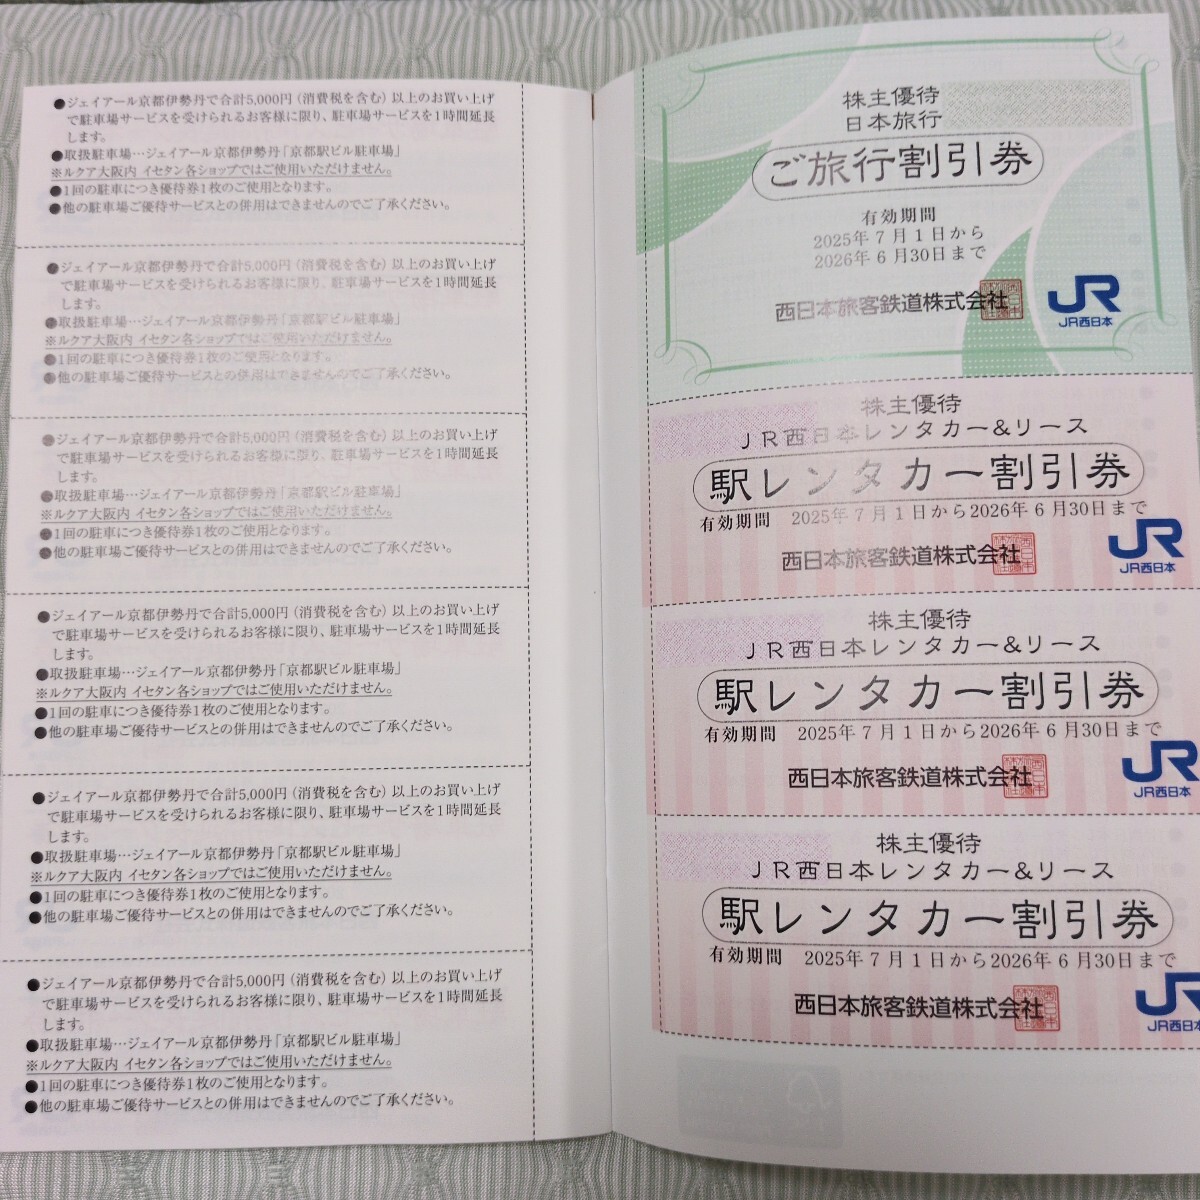 ●ジェイアール京都伊勢丹で合計5,000円(消費税を含む)以上のお買い上げ
で駐車場サービスを受けられるお客様に限り、駐車場サービスを1時間延長
します。
●取扱駐車場…ジェイアール京都伊勢丹「京都駅ビル駐車場」
※ルクア大阪内 イセタン各ショップではご使用いただけません。
●1回の駐車につき優待券1枚のご使用となります。
●他の駐車場ご優待サービスとの併用はできませんのでご了承ください。
●ジェイアール京都伊勢丹で合計5,000円(消費税を含む)以上のお買い上げ
で駐車場サービスを受けられるお客様に限り、駐車場サービスを1時間延長
します。
●取扱駐車場…ジェイアール京都伊勢丹「京都駅ビル駐車場」
※ルクア大阪内 イセタン各ショップではご使用いただけません。
●1回の駐車につき優待券1枚のご使用となります。
●他の駐車場ご優待サービスとの併用はできませんのでご了承ください。
●ジェイアール京都伊勢丹で合計5,000円(消費税を含む)以上のお買い上げ
で駐車場サービスを受けられるお客様に限り、駐車場サービスを1時間延長
します。
●取扱駐車場…ジェイアール京都伊勢丹「京都駅ビル駐車場」
※ルクア大阪内 イセタン各ショップではご使用いただけません。
●1回の駐車につき優待券1枚のご使用となります。
●他の駐車場ご優待サービスとの併用はできませんのでご了承ください。
●ジェイアール京都伊勢丹で合計5,000円(消費税を含む)以上のお買い上げ
で駐車場サービスを受けられるお客様に限り、駐車場サービスを1時間延長
します。
●取扱駐車場…ジェイアール京都伊勢丹「京都駅ビル駐車場」
※ルクア大阪内 イセタン各ショップではご使用いただけません。
●1回の駐車につき優待券1枚のご使用となります。
●他の駐車場ご優待サービスとの併用はできませんのでご了承ください。
●ジェイアール京都伊勢丹で合計5,000円(消費税を含む)以上のお買い上げ
で駐車場サービスを受けられるお客様に限り、駐車場サービスを1時間延長
します。
●取扱駐車場…ジェイアール京都伊勢丹「京都駅ビル駐車場」
※ルクア大阪内 イセタン各ショップではご使用いただけません。
●1回の駐車につき優待券1枚のご使用となります。
●他の駐車場ご優待サービスとの併用はできませんのでご了承ください。
●ジェイアール京都伊勢丹で合計5,000円(消費税を含む)以上のお買い上げ
で駐車場サービスを受けられるお客様に限り、駐車場サービスを1時間延長
します。
●取扱駐車場…ジェイアール京都伊勢丹「京都駅ビル駐車場」
※ルクア大阪内 イセタン各ショップではご使用いただけません。
●1回の駐車につき優待券1枚のご使用となります。
●他の駐車場ご優待サービスとの併用はできませんのでご了承ください。
株主優待
日本旅行
ご旅行割引券
有効期間
2025年7月1日から
2026年6月30日まで
西日本旅客鉄道株式会社
JR
JR西日本
株主優待
JR西日本レンタカー&リース
駅レンタカー割引券
有効期間 2025年7月1日から2026年6月30日まで
西日本旅客鉄道株式会社
JR
JR西日本
株主優待
JR西日本レンタカー&リース
駅レンタカー割引券
有効期間 2025年7月1日から2026年6月30日まで
西日本旅客鉄道株式会社
JR
JR西日本
株主優待
JR西日本レンタカー&リース
駅レンタカー割引券
有効期間 2025年7月1日から2026年6月30日まで
西日本旅客鉄道株式会社
JR
JR西日本